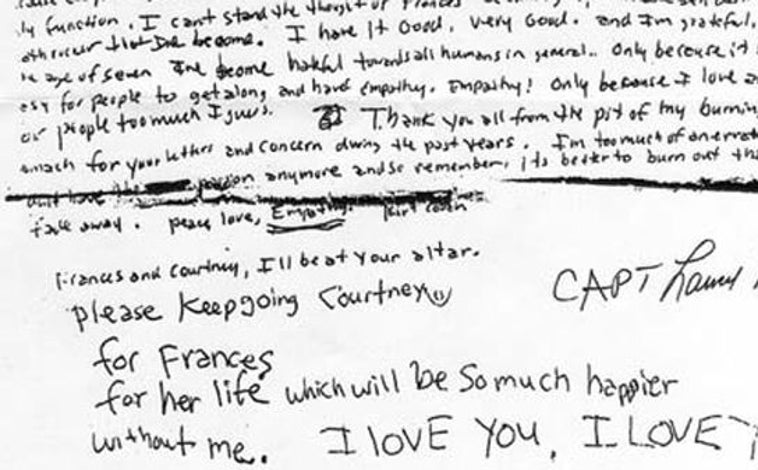 ly function. I can't stand the thought of Frances
I have it Good, very Good. and I'm grateful,
age of seven I've become hateful towards all humans in general.. Only because it
easy for people to get along and have empathy. Empathy! Only because I love a
or people too much I guess. Thank you all from the pit of my burnin
omach for your letters and concern during the past years. I'm too much of an errat
anymore and so remember, its better to burn out tha
fade away. peace love, Empathy. Kurt Cobain
Frances and Courtney, I'll be at your altar.
please Keep going Courtney
CAPT
for Frances
for her life which will be So much happier
without me. I LOVE YOU, I LOVE